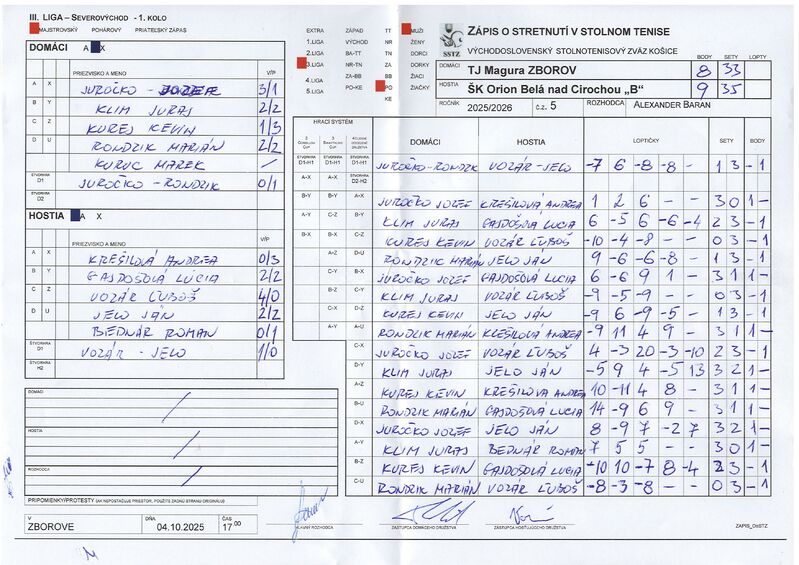 III. LIGA – SEVEROVÝCHOD - 1. KOLO
MAJSTROVSKÝ POHÁROVÝ PRIATEĽSKÝ ZÁPAS
EXTRA ZÁPAD TT MUŽI
1.LIGA VÝCHOD NR ŽENY
2.LIGA BA-TT TN DORCI
3.LIGA NR-TN ZA DORKY
4.LIGA ZA-BB BB ŽIACI
5.LIGA PO-KE PO ŽIAČKY
KE
SSTZ
ZÁPIS O STRETNUTÍ V STOLNOM TENISE
VÝCHODOSLOVENSKÝ STOLNOTENISOVÝ ZVÄZ KOŠICE
BODY SETY LOPTY
DOMÁCI TJ Magura ZBOROV 8 33
HOSTIA ŠK Orion Belá nad Cirochou „B“ 9 35
ROČNÍK 2025/2026 č.z. 5 ROZHODCA ALEXANDER BARAN
DOMÁCI A X
PRIEZVISKO A MENO V/P
A X JUROČKO - JOZEF 3/1
B Y KLIM JURAJ 2/2
C Z KUREJ KEVIN 1/3
D U RONDZIK MARIÁN 2/2
KURUC MAREK /
ŠTVORHRA D1 JUROČKO - RONDZIK 0/1
ŠTVORHRA D2
HOSTIA A X
PRIEZVISKO A MENO V/P
A X KREŠILOVÁ ANDREA 0/3
B Y GAJDOŠOVÁ LUCIA 2/2
C Z VOZÁR ĽUBOŠ 4/0
D U JELO JÁN 2/2
BIEDNÁR ROMAN 0/1
ŠTVORHRA D1 VOZÁR - JELO 1/0
ŠTVORHRA H2
HRACÍ SYSTÉM
DOMÁCI HOSTIA LOPTIČKY SETY BODY
ŠTVORHRA D1-H1 JUROČKO-RONDZIK VOZÁR-JELO -7 6 -8 -8 - 1 3 -1
A-X ŠTVORHRA D2-H2
B-Y A-X JUROČKO JOZEF KREŠILOVÁ ANDREA 1 2 6 - - 3 0 1 -
A-Y C-Z B-Y KLIM JURAJ GAJDOŠOVÁ LUCIA 6 -5 6 -6 -4 2 3 -1
B-X C-Z KUREJ KEVIN VOZÁR ĽUBOŠ -10 -4 -8 - - 0 3 -1
A-Z D-U RONDZIK MARIÁN JELO JÁN 9 -6 -6 -8 - 1 3 -1
C-Y B-X JUROČKO JOZEF GAJDOŠOVÁ LUCIA 6 -6 9 1 - 3 1 1 -
B-Z C-Y KLIM JURAJ VOZÁR ĽUBOŠ -9 -5 -9 - - 0 3 -1
C-X D-Z KUREJ KEVIN JELO JÁN -9 6 -9 -5 - 1 3 -1
A-Y A-U RONDZIK MARIÁN KREŠILOVÁ ANDREA -9 11 4 9 - 3 1 1 -
C-X JUROČKO JOZEF VOZÁR ĽUBOŠ 4 -3 20 -3 -10 2 3 -1
D-Y KLIM JURAJ JELO JÁN -5 9 4 -5 13 3 2 1 -
A-Z KUREJ KEVIN KREŠILOVÁ ANDREA 10 -11 4 8 - 3 1 1 -
B-U RONDZIK MARIÁN GAJDOŠOVÁ LUCIA 14 -9 6 9 - 3 1 1 -
D-X JUROČKO JOZEF JELO JÁN 8 -9 7 -2 7 3 2 1 -
A-Y KLIM JURAJ BEDNÁR ROMAN 7 5 5 - - 3 0 1 -
B-Z KUREJ KEVIN GAJDOŠOVÁ LUCIA -10 10 -7 8 -4 2 3 -1
C-U RONDZIK MARIÁN VOZÁR ĽUBOŠ -8 -3 -8 - - 0 3 -1
DOMÁCI
HOSTIA
ROZHODCA
PRIPOMIENKY/PROTESTY (AK NEPOSTAČUJE PRIESTOR, POUŽITE ZADNÚ STRANU ORIGINÁLU)
V ZBOROVE DŇA 04.10.2025 ČAS 17.00
HLAVNÝ ROZHODCA ZÁSTUPCA DOMÁCEHO DRUŽSTVA ZÁSTUPCA HOSŤUJÚCEHO DRUŽSTVA ZÁPIS_OsSTZ